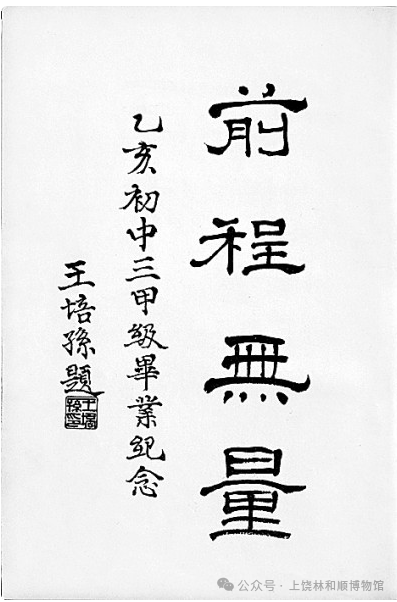 前程無量
乙亥初中三甲級畢業紀念
王培孫題
王培孫印
公众号 · 上饶林和顺博物馆